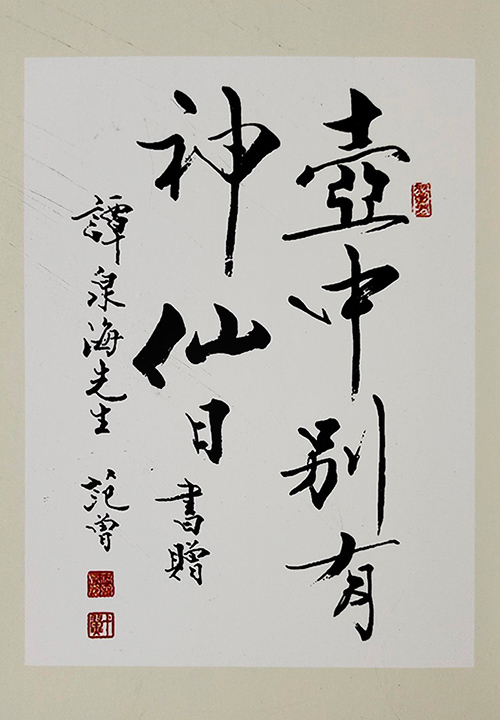 壺中別有
神仙日
書贈
譚泉海先生 范曾